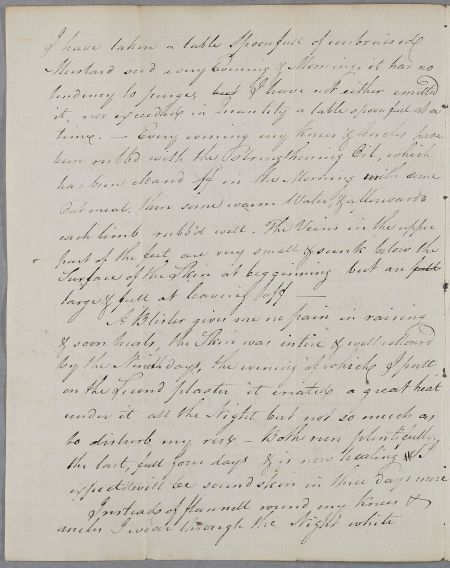 I have taken a table Spoonfull of unbruised
Mustard seed every Evening & Morning, it has no
tendency to purge, & I have not either omitted
it, nor exceeded in Quantity a table spoonfull at a
time. — Every evening my knees & ancles have
been rubb'd with the Strengthening Oil, which
has been cleand off in the Morning with some
Oatmeal, then some warm Water & afterwards
each limb rubb'd well. The Veins in the upper
part of the feet are very small & sunk below the
Surface of the Skin at beginning but are full
large & full at leaving off —
A Blister gives me no pain in raising
& soon heals, the Skin was intire & well coloured
by the Ninth day, the evening of which I putt
on the Second plaster it created a great heat
under it all the Night but not so much as
to disturb my rest – Both run plentifully,
the last, full four days & is now healing & I
expect will be sound skin in three days more
Instead of flannell round my knees &
ancles I wear through the Night white